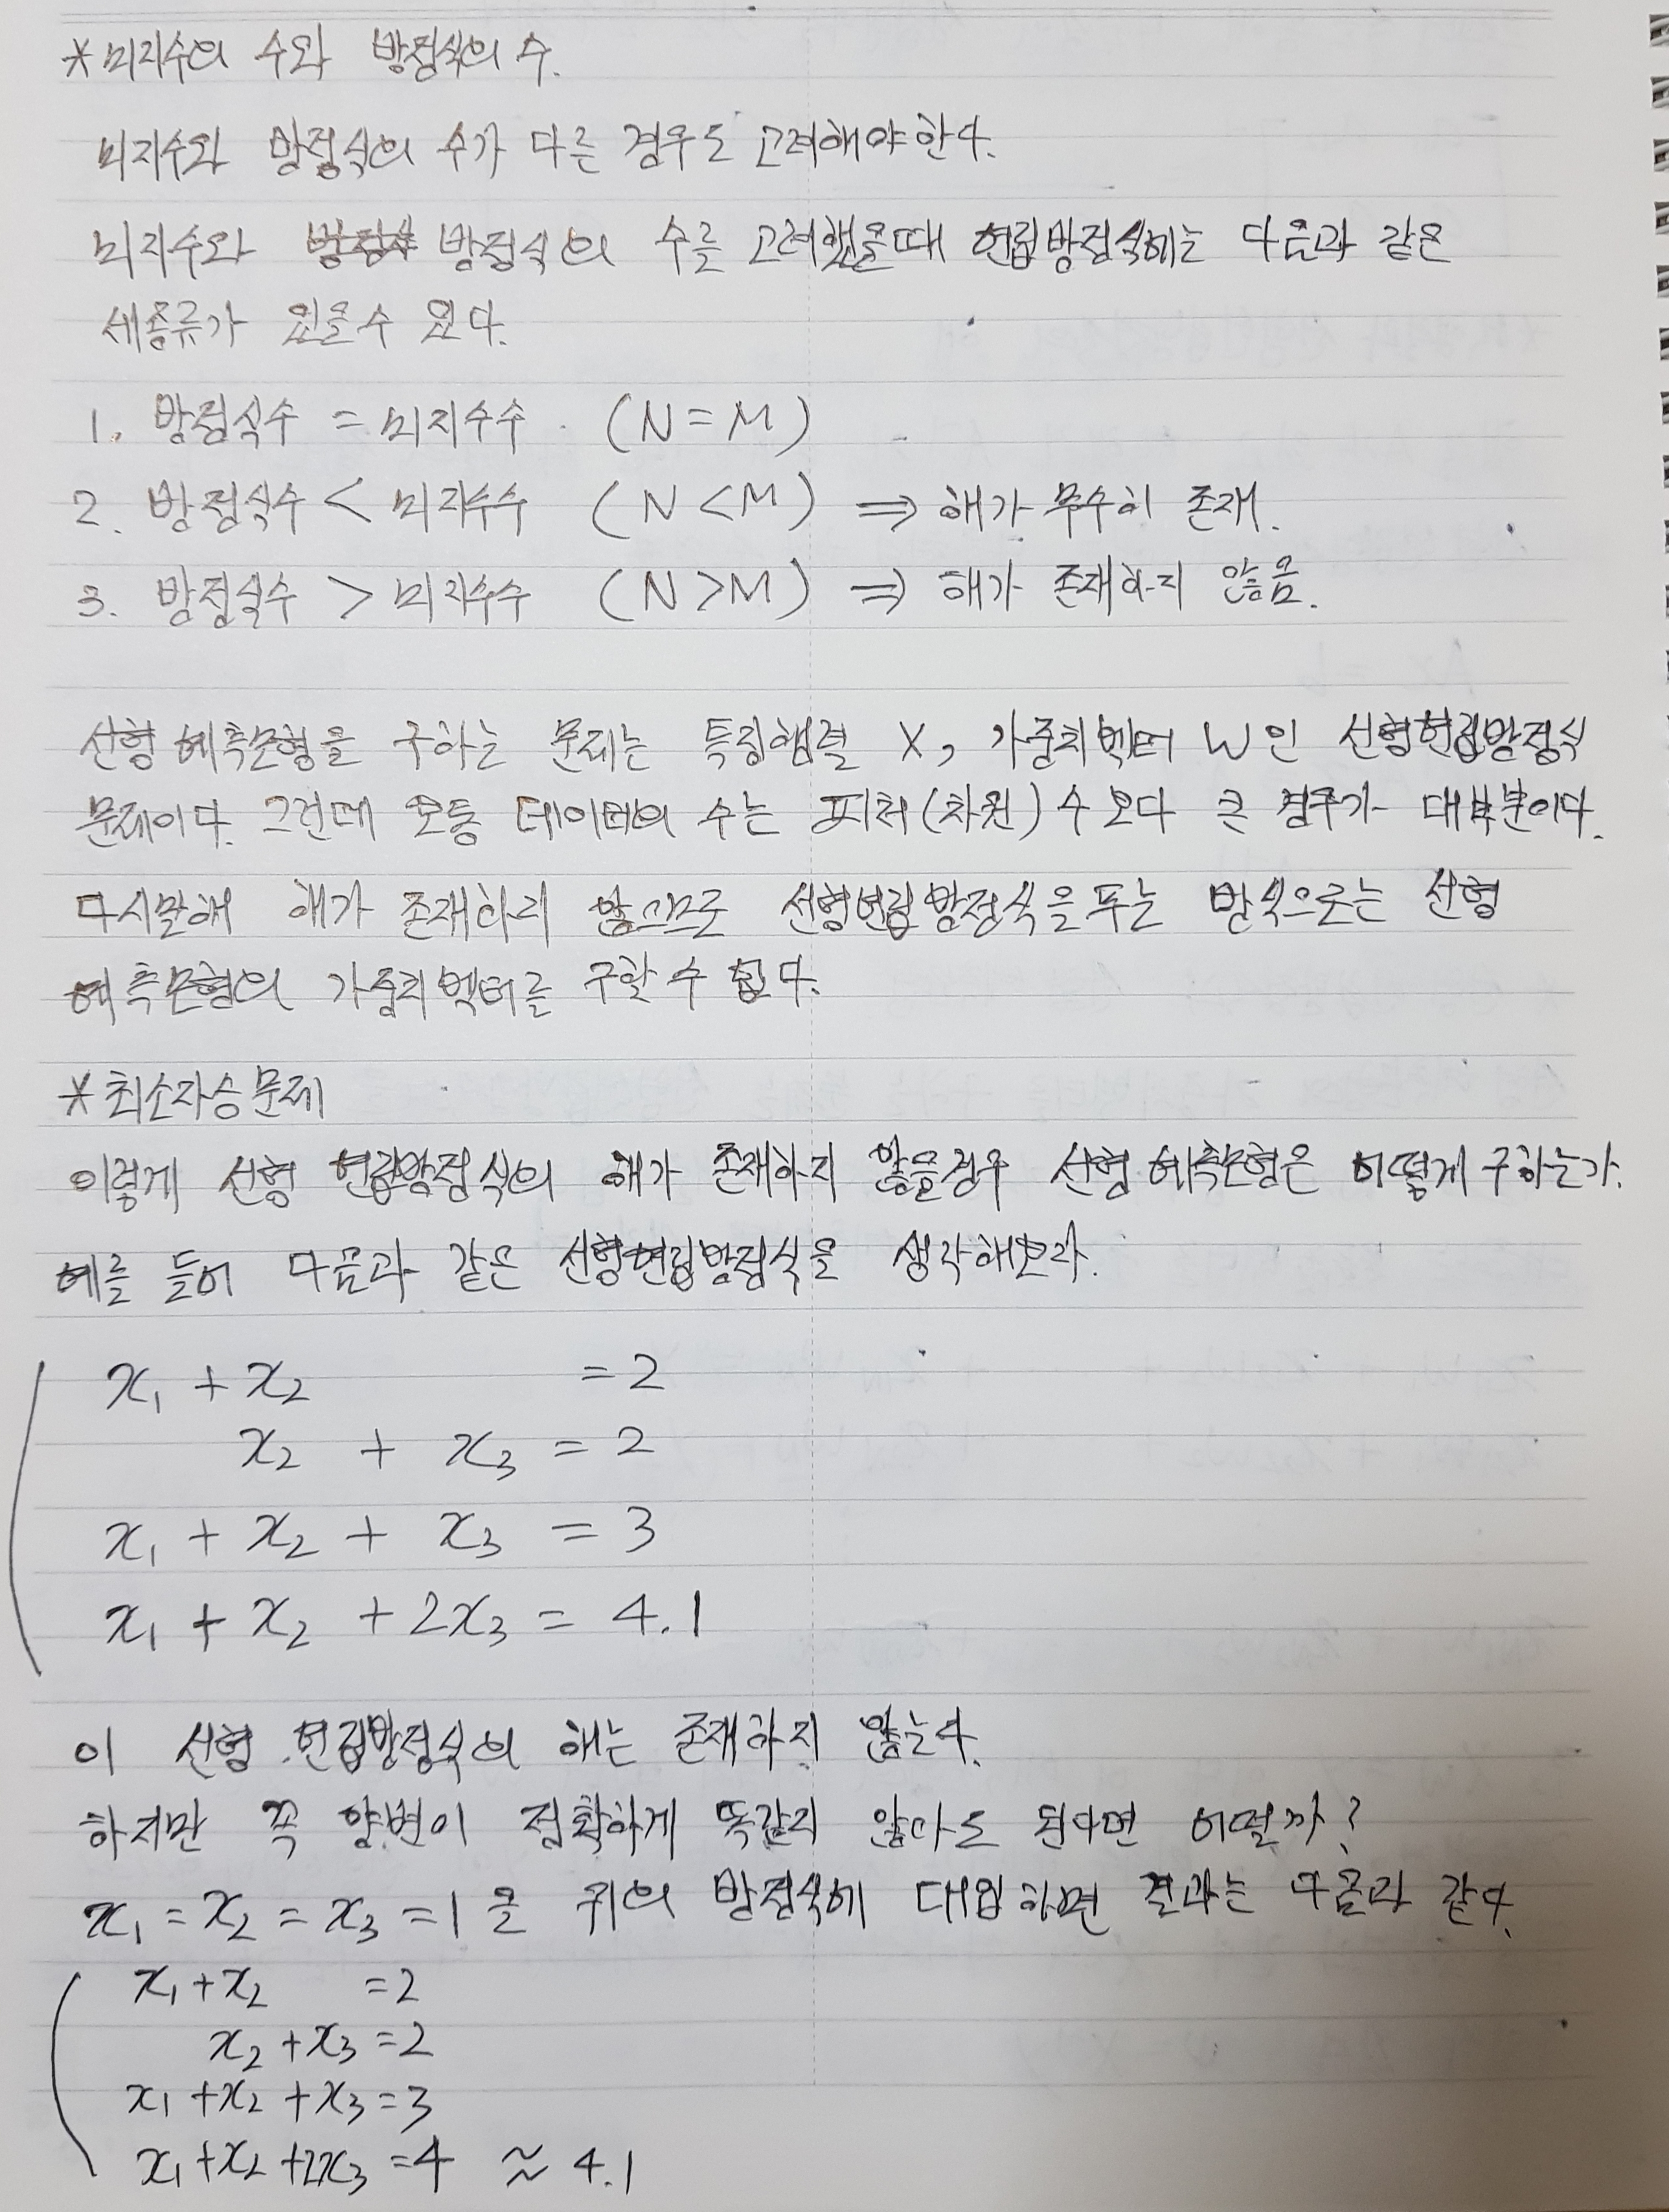 *미지수의 수와 방정식의 수.
미지수와 방정식의 수가 다른 경우도 고려해야한다.
미지수와 방정식의 수를 고려했을때 연립방정식에는 다음과 같은
세종류가 있을 수 있다.
1. 방정식수 = 미지수수 (N=M)
2. 방정식수 < 미지수수 (N<M) ⇒ 해가 무수히 존재.
3. 방정식수 > 미지수수 (N>M) ⇒ 해가 존재하지 않음.
선형 예측모형을 구하는 문제는 특징행렬 X, 가중치벡터 W인 선형연립방정식
문제이다. 그런데 보통 데이터의 수는 피처(차원) 수 보다 큰 경우가 대부분이다.
다시말해 해가 존재하지 않으므로 선형연립방정식을 푸는 방식으로는 선형
예측모형의 가중치벡터를 구할 수 없다.
*최소자승문제
이렇게 선형 연립방정식의 해가 존재하지 않을경우 선형 예측모형은 어떻게 구하는가.
예를 들어 다음과 같은 선형연립방정식을 생각해보라.
x₁ + x₂ = 2
x₂ + x₃ = 2
x₁ + x₂ + x₃ = 3
x₁ + x₂ + 2x₃ = 4.1
이 선형 연립방정식의 해는 존재하지 않는다.
하지만 꼭 양변이 정확하게 똑같지 않아도 된다면 어떨까?
x₁ = x₂ = x₃ = 1 을 위의 방정식에 대입하면 결과는 다음과 같다.
x₁ + x₂ = 2
x₂ + x₃ = 2
x₁ + x₂ + x₃ = 3
x₁ + x₂ + 2x₃ = 4 ≈ 4.1